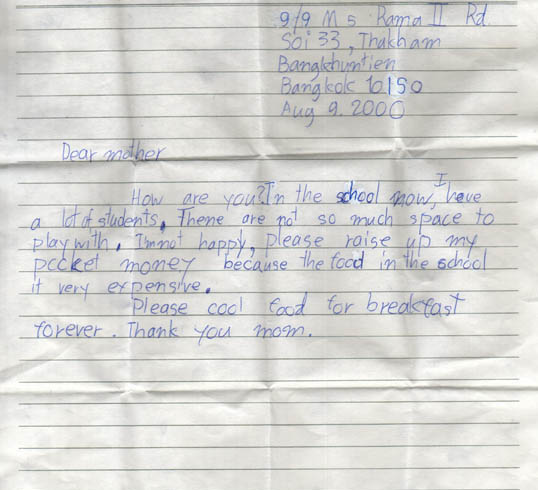 9/9 M 5 Rama II Rd.
Soi 33, Thakham
Bangkhuntien
Bangkok 10150
Aug 9. 2000
Dear mother
How are you? In the school now, I have
a lot of students. There are not so much space to
play with. I'm not happy, please raise up my
pocket money because the food in the school
it very expensive.
Please cool food for breakfast
forever. Thank you mom.